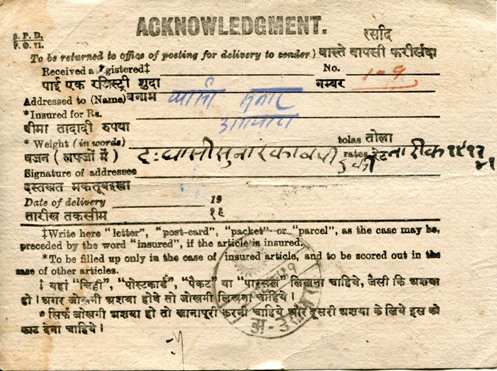 S. P. D.
P. O. 71.
ACKNOWLEDGMENT.
रसीद
To be returned to office of posting for delivery to sender) वास्ते वापसी फरीसंदा
Received a *gistered‡ No.
पाई एक रजिस्ट्री शुदा नम्बर 109
Addressed to (Name) बनाम
*Insured for Rs.
बीमा तादादी रुपया
* Weight (in words) tolas तोला
वजन (लफ्जों में) rates
Signature of addressee
दस्तखत मकतूबअलह
Date of delivery 19
तारीख तकसीम १९
‡Write here "letter", "post-card", "packet" or "parcel", as the case may be,
preceded by the word "insured", if the article is insured.
*To be filled up only in the case of insured article, and to be scored out in the
case of other articles.
‡ यहां "चिट्ठी", "पोस्टकार्ड", "पैकट" या "पारसल" लिखना चाहिये, जैसी कि अशया
हो। अगर जोखनी अशया होवे तो जोखनी लिखना चाहिये।
* सिर्फ जोखनी अशया हो तो खानापूरी करनी चाहिये और दूसरी अशया के लिये इस को
काट देना चाहिये।